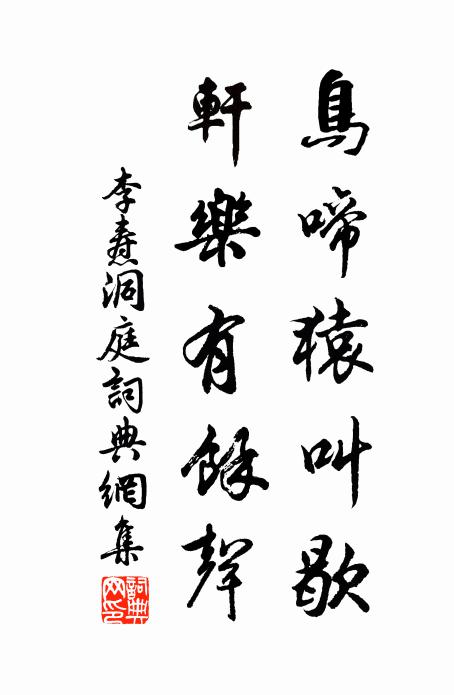 鳥啼猿叫歇
軒樂有餘聲
李燾洞庭詞典網集
詞典网印